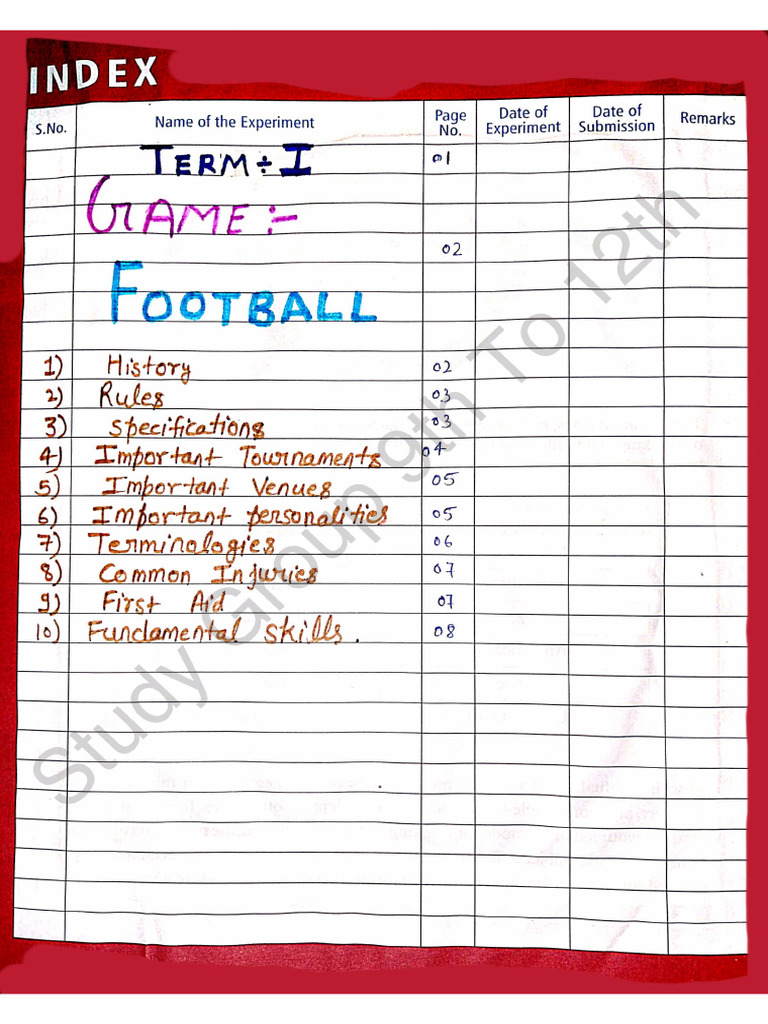 INDEX
S.No. Name of the Experiment Page No. Date of Experiment Date of Submission Remarks
TERM ÷ I 01
GAME :-
02
FOOTBALL
1) History 02
2) Rules 03
3) specifications 03
4) Important Tournaments 04
5) Important Venues 05
6) Important personalities 05
7) Terminologies 06
8) Common Injuries 07
9) First Aid 07
10) Fundamental skills. 08
Study Group 9th To 12th